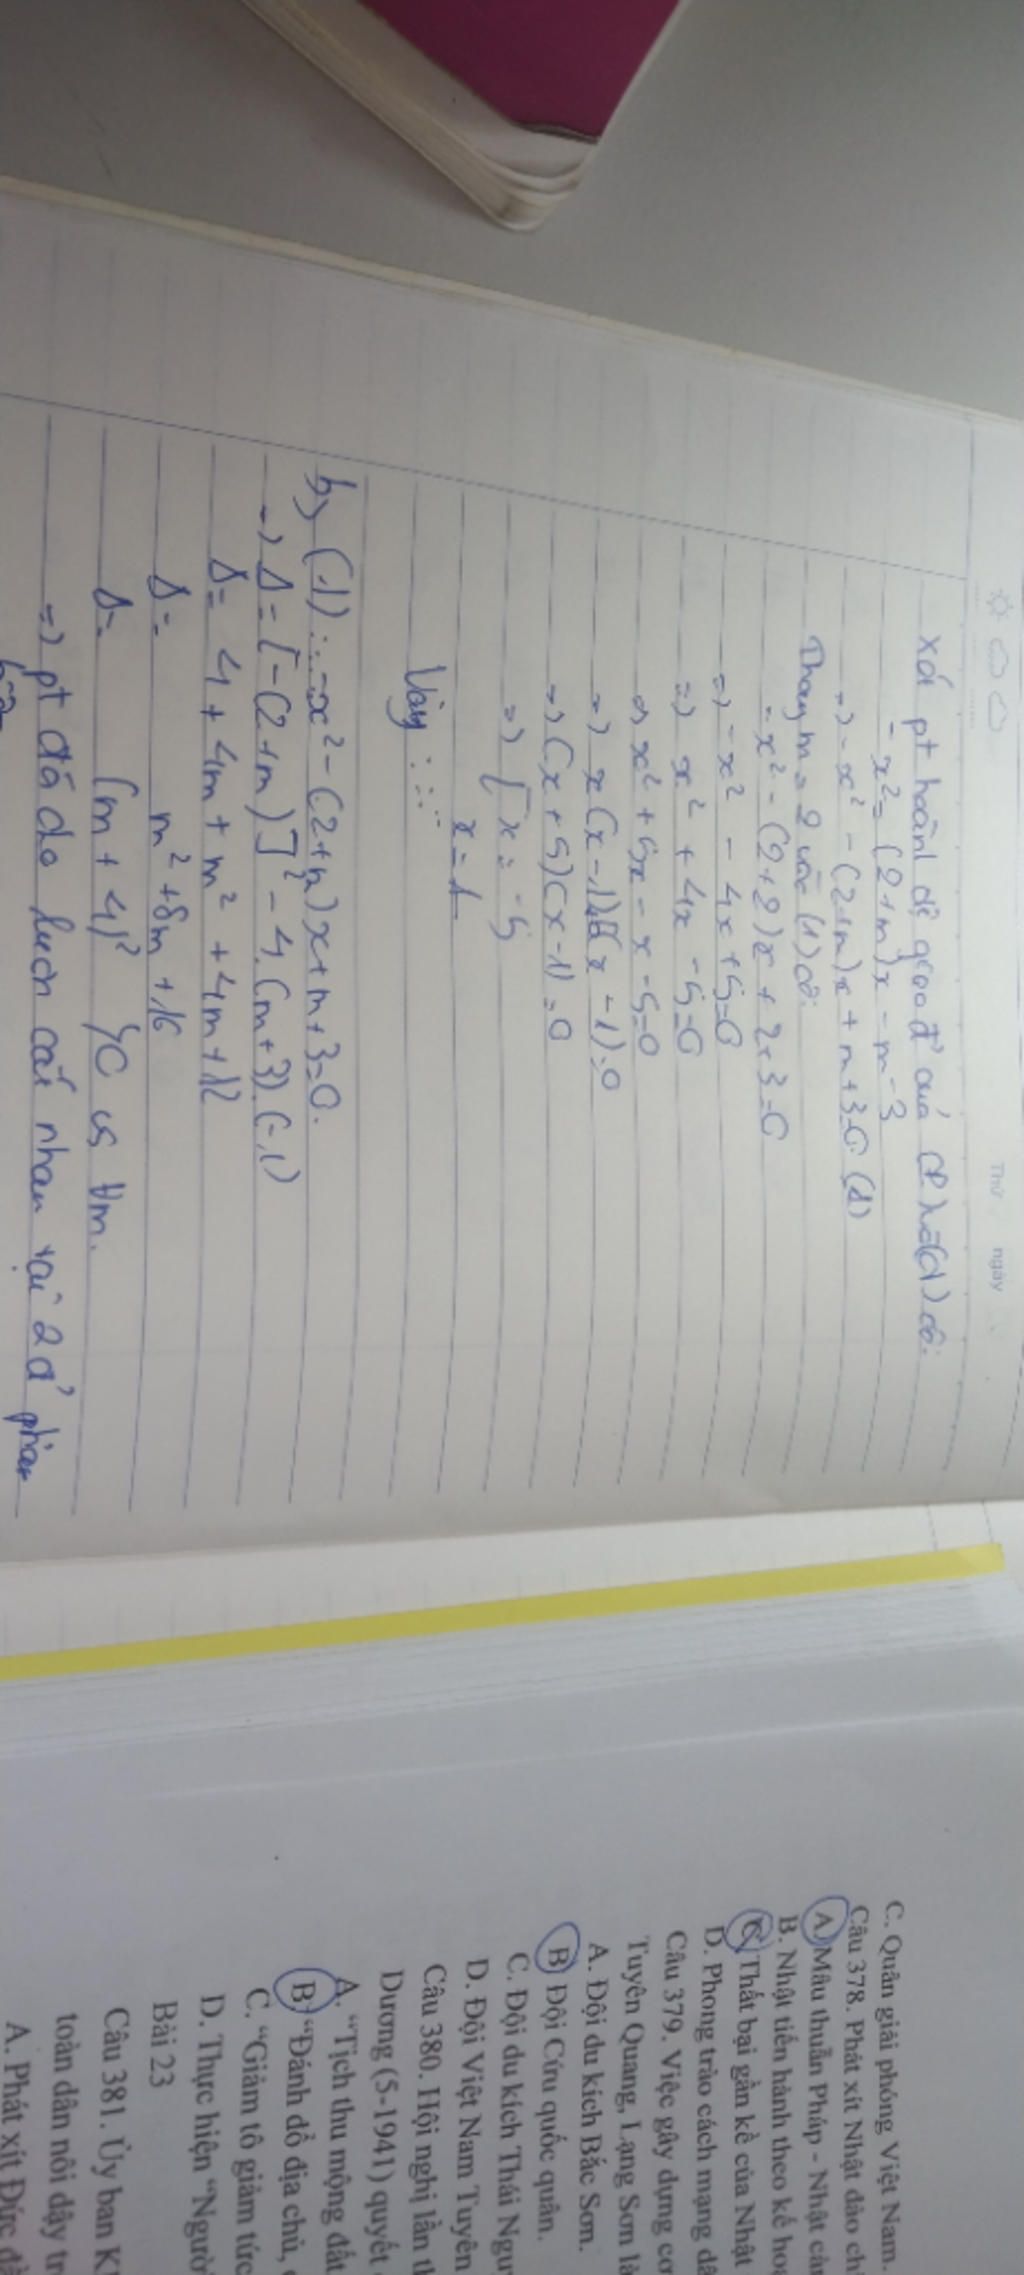 Thứ ngày
Xét pt hoành độ giao đ' của (P) và (d) có:
- x² = (2+m)x - m - 3
=> - x² - (2+m)x + m + 3 = 0 (1)
Thay m = 2 vào (1) có:
- x² - (2+2)x + 2+3 = 0
=> - x² - 4x + 5 = 0
=> x² + 4x - 5 = 0
=> x² + 5x - x - 5 = 0
=> x(x - 1) (x - 1) = 0
=> (x + 5)(x - 1) = 0
=> [ x = -5
x = 1
Vậy : ...
b) (1) : - x² - (2+m)x + m + 3 = 0.
=> Δ = [-(2+m)]² - 4.(m+3).(-1)
Δ = 4 + 4m + m² + 4m + 12
Δ = m² + 8m + 16
Δ = (m + 4)² ∀m.
=> pt đó do luôn cắt nhau tại 2 đ' phân
C. Quân giải phóng Việt Nam.
Câu 378. Phát xít Nhật đảo ch
A. Mâu thuẫn Pháp - Nhật càn
B. Nhật tiến hành theo kế hoạ
C. Thất bại gần kề của Nhật
D. Phong trào cách mạng dâ
Câu 379. Việc gây dựng cơ
Tuyên Quang, Lạng Sơn là
A. Đội du kích Bắc Sơn.
B. Đội Cứu quốc quân.
C. Đội du kích Thái Ngu
D. Đội Việt Nam Tuyên
Câu 380. Hội nghị lần th
Dương (5-1941) quyết
A. “Tịch thu ruộng đất
B. “Đánh đổ địa chủ,
C. “Giảm tô giảm tức
D. Thực hiện “Người
Bài 23
Câu 381. Ủy ban Kh
toàn dân nổi dậy tr
A. Phát xít Đức đầ